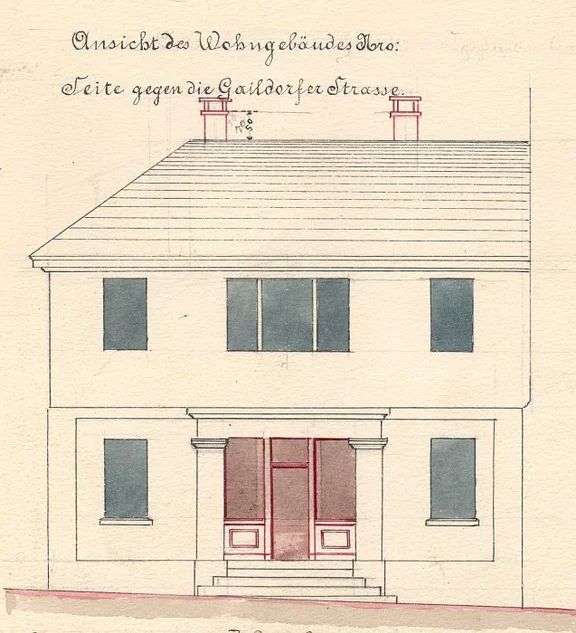 Ansicht des Wohngebäudes Nro:
Seite gegen die Gaildorfer Strasse.